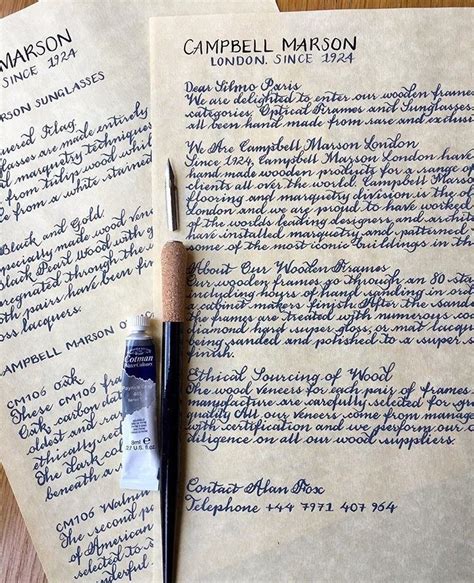 MARSON
SINCE 1924
RSON SUNGLASSES
Flag
are made entirely
marquetry techniques
from tulip wood
from a white stained
Black and Gold
made wood
Black Pearl Wood with
through the
both pairs have been
lacquers.
CAMPBELL MARSON
CM106 Oak
These CM106 frames
Oak carbon
oldest and
ethically
The dark
beneath a
CM106 Walnut
The second
of American
selected to
CAMPBELL MARSON
LONDON. SINCE 1924
Dear Silmo Paris
We are delighted to enter our wooden frames
categories Optical Frames and Sunglasses
all been hand made from rare and
We Are Campbell Marson London
Since 1924, Campbell Marson London have
hand made wooden products for a range of
clients all over the world. Campbell Marson
flooring and marquetry division is the
London and we are proud to have worked
of the worlds leading designers and
have installed marquetry and patterned
some of the most iconic buildings in the
About Our Wooden Frames
Our wooden frames go through an 80
including hours of hand sanding in
cabinet makers finish. After the
the frames are treated with numerous
diamond hard super gloss or mat
being sanded and polished to a
finish.
Ethical Sourcing of Wood
The wood veneers for each pair of frames
manufacture are carefully selected for
quality. All our veneers come from
with certification and we perform our
diligence on all our wood suppliers.
Contact Alan Fox
Telephone +44 7971 407 964
Cotman
Water Colours
8ml e